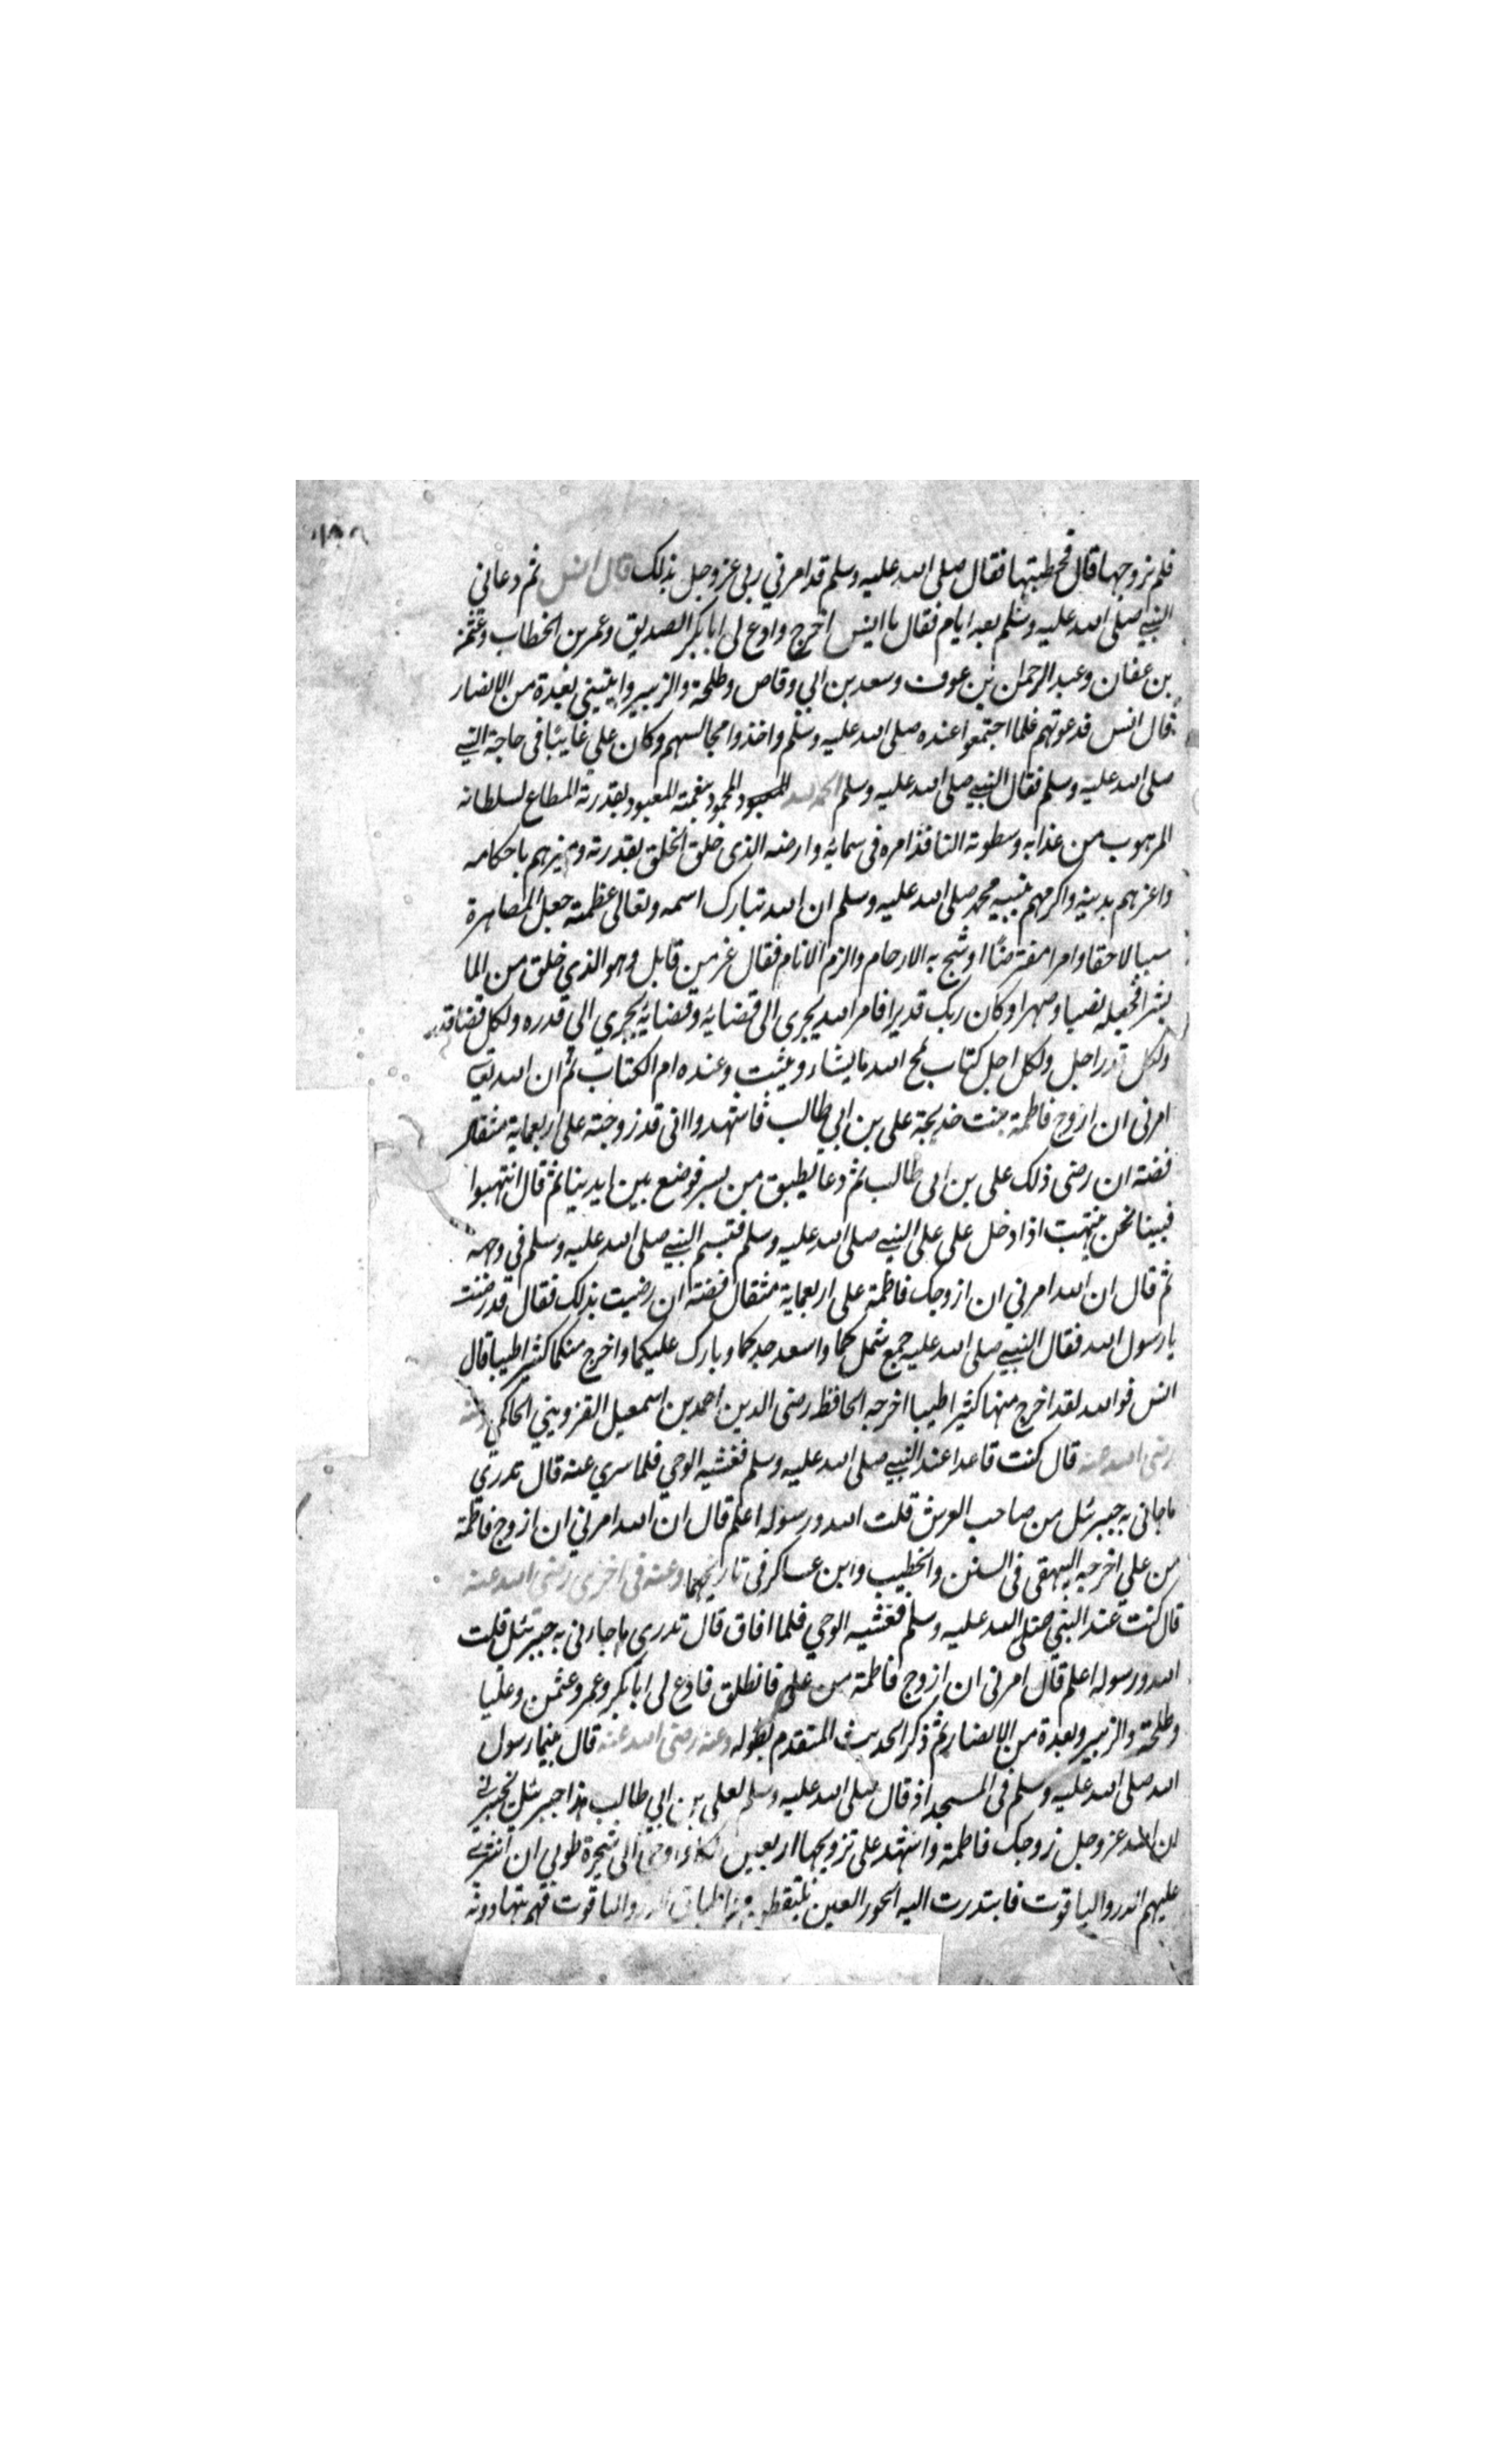 فلم تزوجها قال فخطبتها فقال صلى الله عليه وسلم قد امرني ربى عزوجل بذلك قال انس ثم دعانى
النبي صلى الله عليه وسلم بعد ايام فقال يا انيس اخرج وادع لى ابا بكر الصديق وعمر بن الخطاب وعثمن
بن عفان وعبد الرحمان بن عوف وسعد بن ابي وقاص وطلحة والزبير وبعدة من الانصار
قال انس فدعوتهم فلما اجتمعوا عنده صلى الله عليه وسلم واخذوا مجالسهم وكان علي غايبا فى حاجة النبي
صلى الله عليه وسلم فقال النبي صلى الله عليه وسلم الحمد لله المحمود بنعمته المعبود بقدرته المطاع لسلطانه
المرهوب من عذابه وسطوته النافذ امره فى سمايه وارضه الذى خلق الخلق بقدرته وميزهم باحكامه
واعزهم بدينه واكرمهم بنبيه محمد صلى الله عليه وسلم ان الله تبارك اسمه وتعالى عظمته جعل المصاهرة
سببا لاحقا وامرا مفترضا اوشج به الارحام والزم الانام فقال عز من قايل وهو الذي خلق من الما
بشرا فجعله نسبا وصهرا وكان ربك قديرا فامر الله يجرى الى قضايه وقضايه يجري الي قدره ولكل قضا قدر
ولكل قدر اجل ولكل اجل كتاب يمح الله ما يشاء ويثبت وعنده ام الكتاب ثم ان الله تعالى
امرنى ان ازوج فاطمة بنت خديجة على بن ابي طالب فاشهدوا انى قد زوجته على اربعماية مثقال
فضة ان رضى ذلك على بن ابى طالب ثم دعا بطبق من بسر فوضع بين ايدينا ثم قال انتهبوا
فبينا نحن ننتهب اذا دخل على على النبي صلى الله عليه وسلم فتبسم النبي صلى الله عليه وسلم في وجهه
ثم قال ان الله امرني ان ازوجك فاطمة على اربعماية مثقال فضة ان رضيت بذلك فقال قد رضيت
يا رسول الله فقال النبي صلى الله عليه جمع شملكما واسعد جدكما وبارك عليكما واخرج منكما كثيرا طيبا قال
انس فوالله لقد اخرج منها كثيرا طيبا اخرجه الحافظ رضى الدين احمد بن اسمعيل القزويني الحاكمي وعنه
رضى الله عنه قال كنت قاعدا عند النبي صلى الله عليه وسلم فغشيه الوحي فلما سري عنه قال تدري
ما جانى به جبرئل من صاحب العرش قلت الله ورسوله اعلم قال ان الله امرني ان ازوج فاطمة
من علي اخرجه البيهقى فى السنن والخطيب وابن عساكر فى تاريخهما وعنه فى اخرى رضى الله عنه
قال كنت عند النبي صلى الله عليه وسلم فغشيه الوحي فلما افاق قال تدرى ما جاءنى به جبرئل قلت
الله ورسوله اعلم قال امرنى ان ازوج فاطمة من على فانطلق فادع لى ابا بكر وعمر وعثمن وعليا
وطلحة والزبير وبعدة من الانصار ثم ذكر الحديث المتقدم بطوله وعنه رضى الله عنه قال بينما رسول
الله صلى الله عليه وسلم فى المسجد اذ قال صلى الله عليه وسلم لعلى بن ابي طالب هذا جبرئل يخبرني
ان الله عزوجل زوجك فاطمة واشهد على تزويجها اربعين الف واوحى الى شجرة طوبي ان انثري
عليهم الدر والياقوت فابتدرت اليه الحور العين يلتقطن من اطباق الدر والياقوت فهم يتهادونه